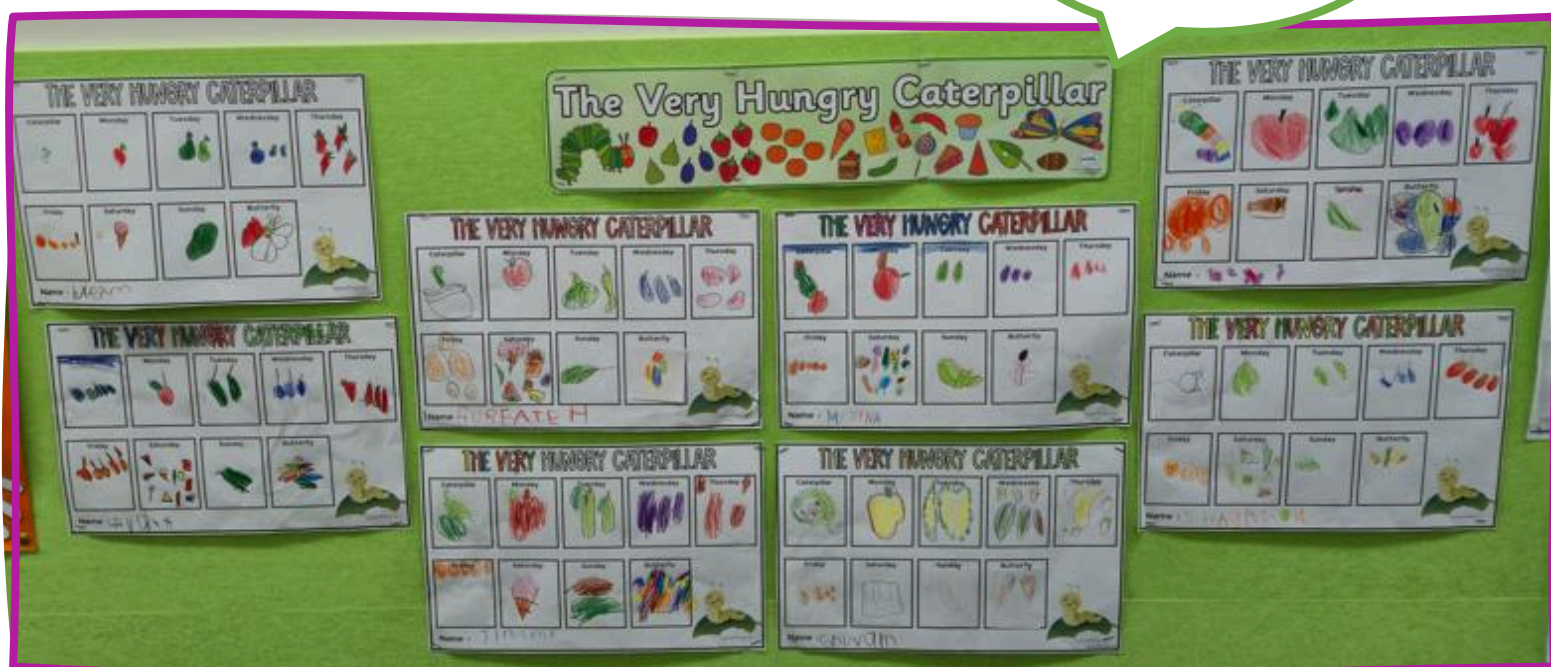 The Very Hungry Caterpillar
THE VERY HUNGRY CATERPILLAR
Caterpillar Monday Tuesday Wednesday Thursday
Friday Saturday Sunday Butterfly
Name :
THE VERY HUNGRY CATERPILLAR
Monday Tuesday Wednesday Thursday
Friday Saturday Sunday Butterfly
Name :
THE VERY HUNGRY CATERPILLAR
Caterpillar Monday Tuesday Wednesday Thursday
Friday Saturday Sunday Butterfly
Name :
THE VERY HUNGRY CATERPILLAR
Caterpillar Monday Tuesday Wednesday Thursday
Friday Saturday Sunday Butterfly
Name :
THE VERY HUNGRY CATERPILLAR
Caterpillar Monday Tuesday Wednesday Thursday
Friday Saturday Sunday Butterfly
Name :
THE VERY HUNGRY CATERPILLAR
Caterpillar Monday Tuesday Wednesday Thursday
Friday Saturday Sunday Butterfly
Name :
THE VERY HUNGRY CATERPILLAR
Caterpillar Monday Tuesday Wednesday Thursday
Friday Saturday Sunday Butterfly
Name :
THE VERY HUNGRY CATERPILLAR
Caterpillar Monday Tuesday Wednesday Thursday
Friday Saturday Sunday Butterfly
Name :